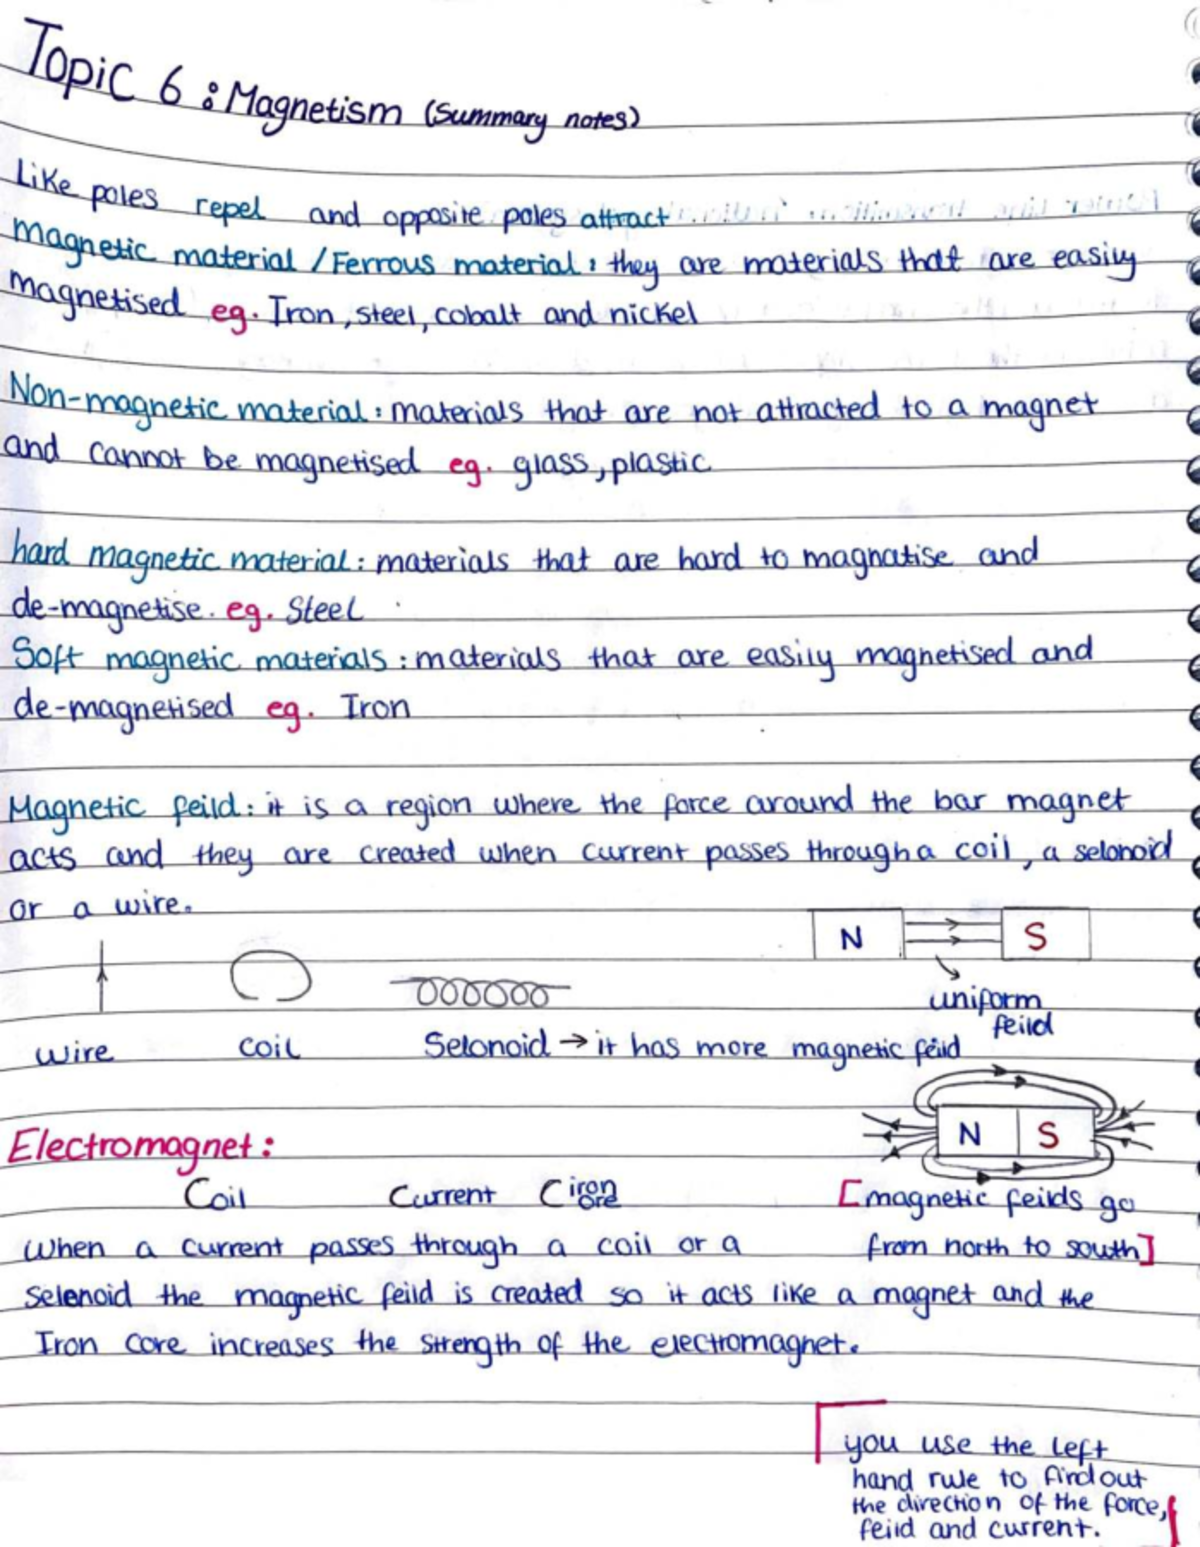 Topic 6 : Magnetism (Summary notes)
Like poles repel and opposite poles attract
magnetic material / Ferrous material : they are materials that are easily
magnetised eg. Iron, steel, cobalt and nickel
Non-magnetic material : materials that are not attracted to a magnet
and cannot be magnetised eg. glass, plastic
hard magnetic material : materials that are hard to magnatise and
de-magnetise. eg. Steel
Soft magnetic materials : materials that are easily magnetised and
de-magnetised eg. Iron
Magnetic feild : it is a region where the force around the bar magnet
acts and they are created when current passes through a coil, a selonoid
or a wire.
N S
uniform
feild
wire coil Selonoid → it has more magnetic feild
N S
Electromagnet :
Coil Current C iron
ore
[magnetic feilds go
from north to south]
When a current passes through a coil or a
Selenoid the magnetic feild is created so it acts like a magnet and the
Iron core increases the strength of the electromagnet.
[you use the left
hand rule to find out
the direction of the force,
feild and current.]